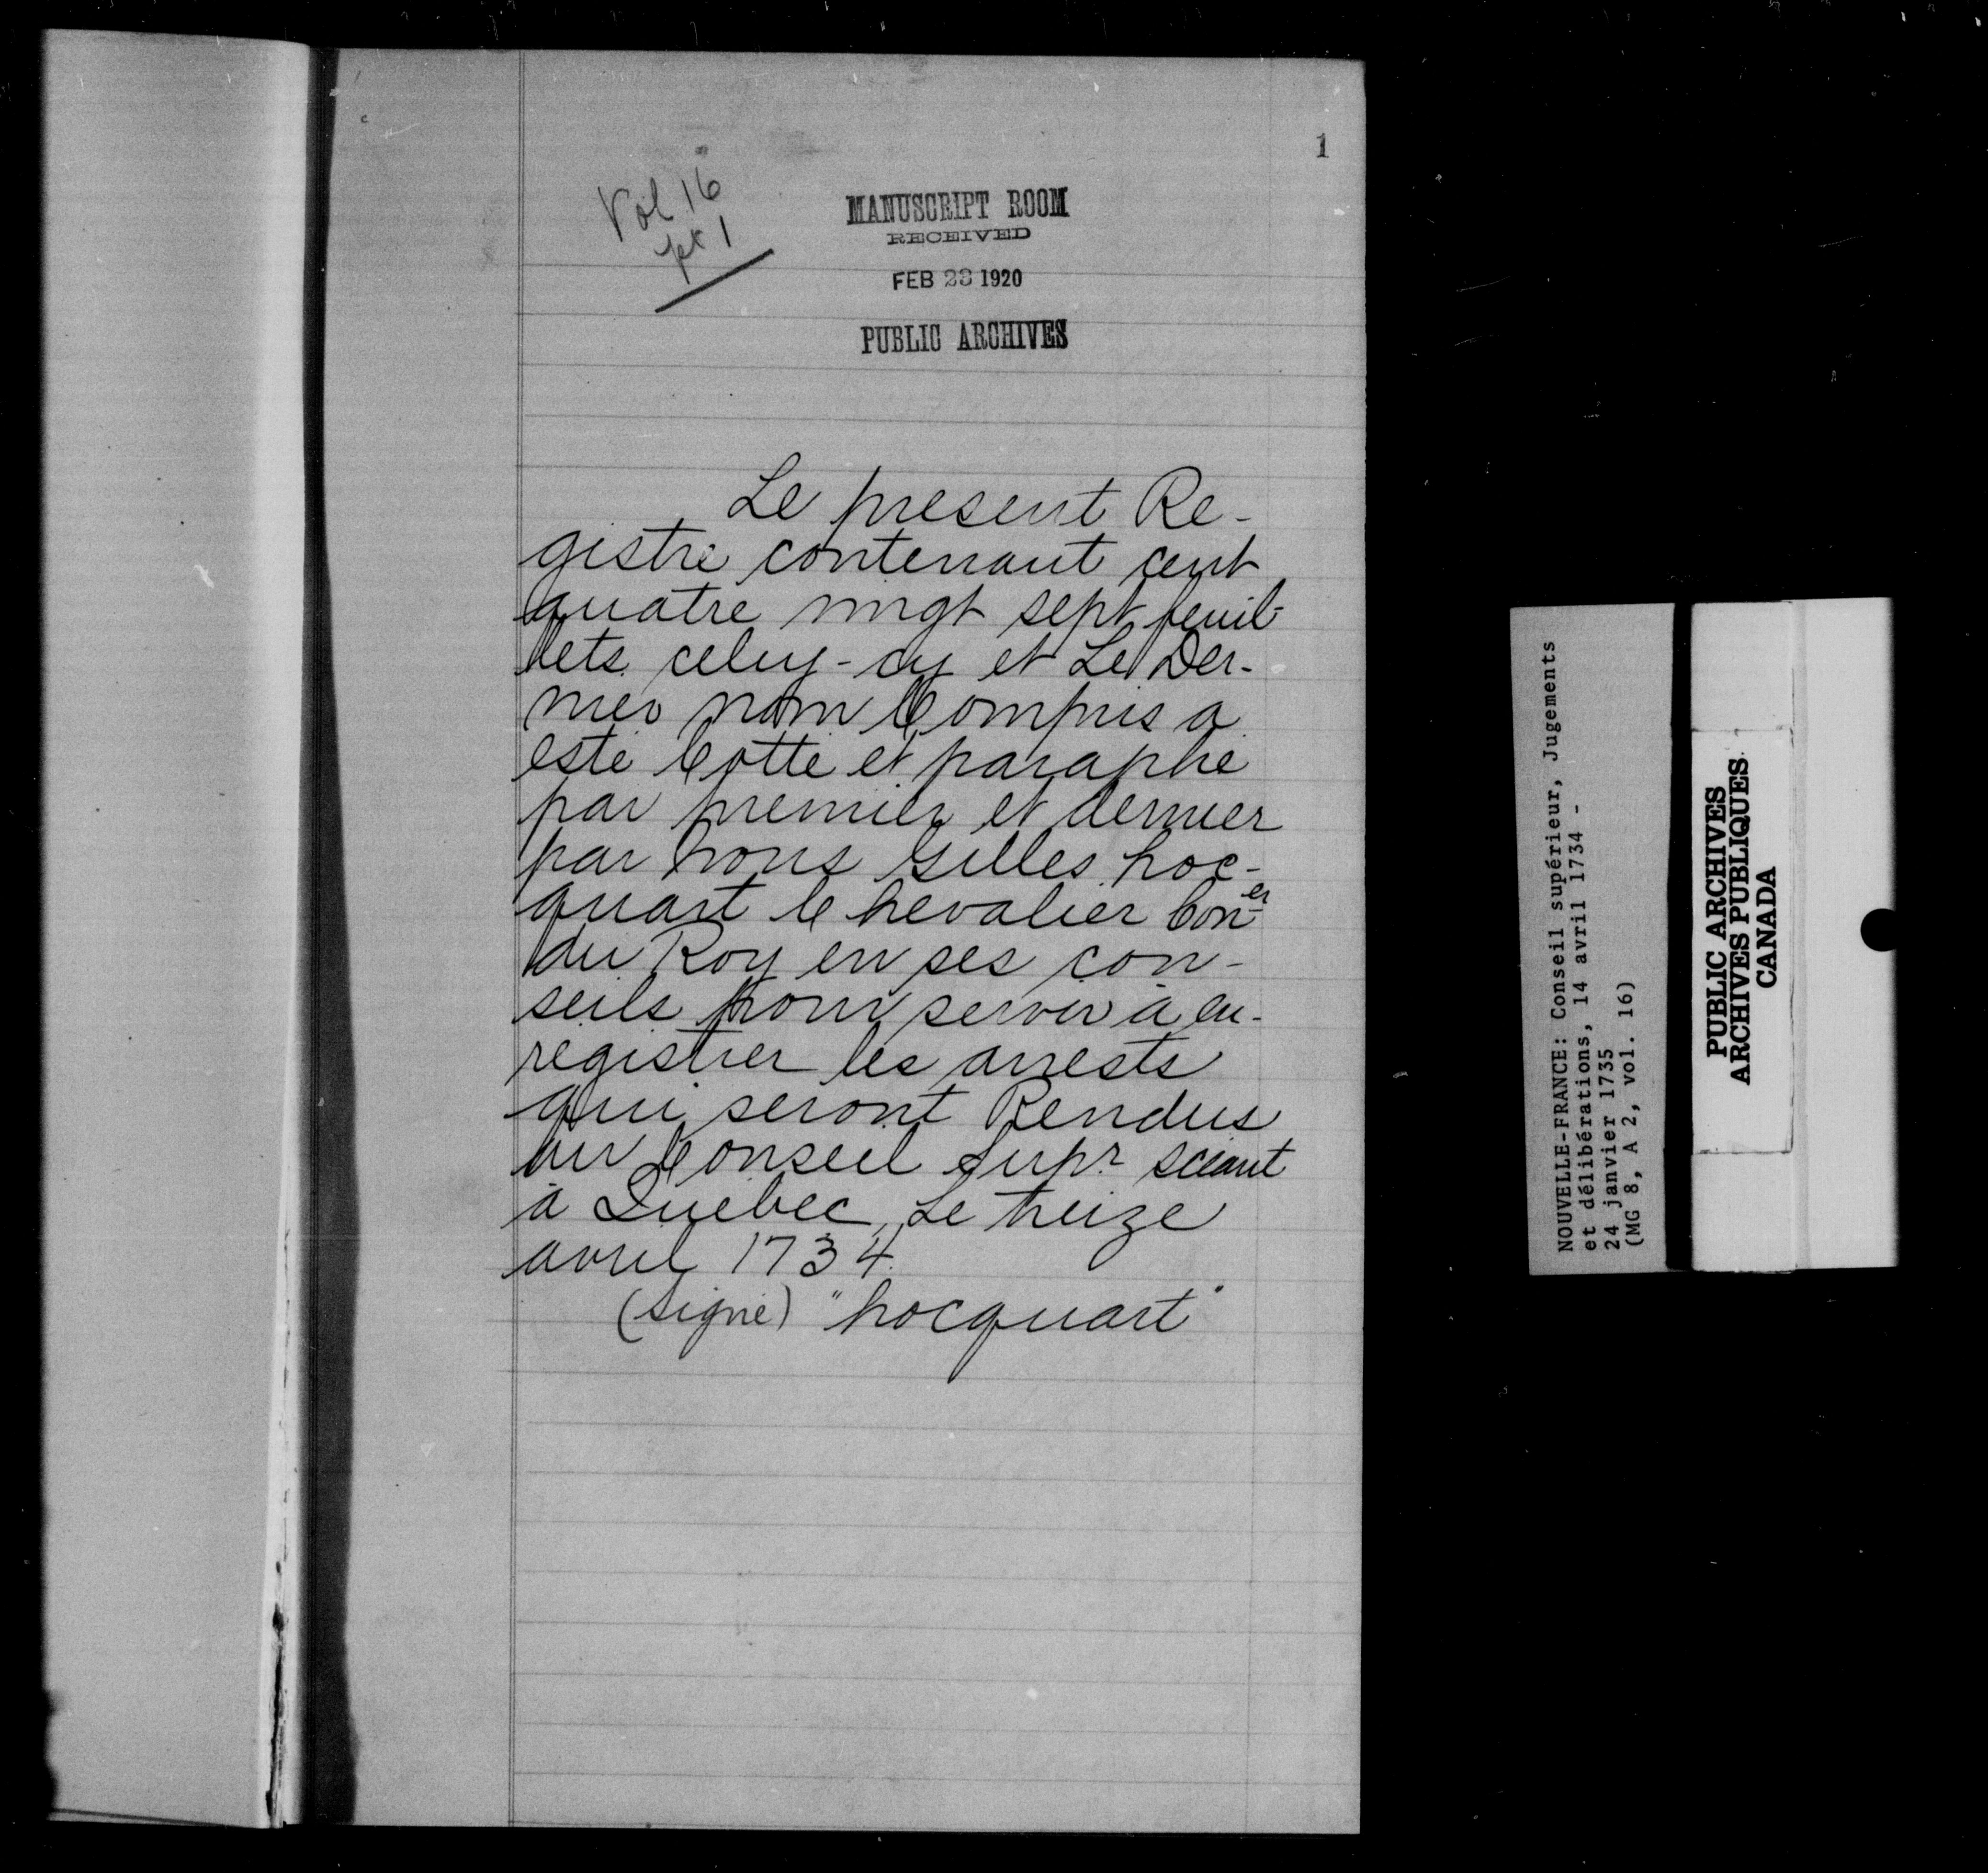 1
Vol 16
pt 1
MANUSCRIPT ROOM
RECEIVED
FEB 23 1920
PUBLIC ARCHIVES
Le present Re-
gistre contenant cent
quatre vingt sept feuil-
lets celuy-cy et Le Der-
nier nom Compris a
esté Cotté et paraphé
par premier et dernier
par Nous Gilles hoc-
quart Chevalier Con.er
du Roy en ses con-
seils pour servir à en-
registrer les arrests
qui seront Rendus
au Conseil Supr sceant
à Quebec, Le treize
avril 1734.
(signé) "hocquart"
NOUVELLE-FRANCE: Conseil supérieur, Jugements
et délibérations, 14 avril 1734 -
24 janvier 1735
(MG 8, A 2, vol. 16)
PUBLIC ARCHIVES
ARCHIVES PUBLIQUES
CANADA